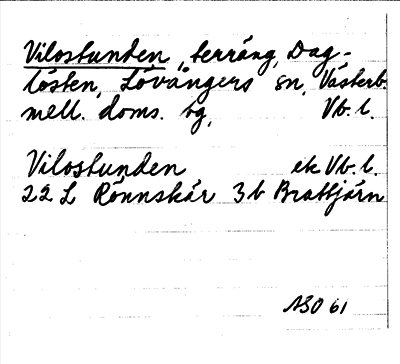 Vilostunden, terräng, Dag-
lösten, Lövångers sn, Västerb.
mell. doms. tg, Vb. l.
Vilostunden ek Vb. l.
22 L Rönnskär 3b Brattjärn
ASO 61